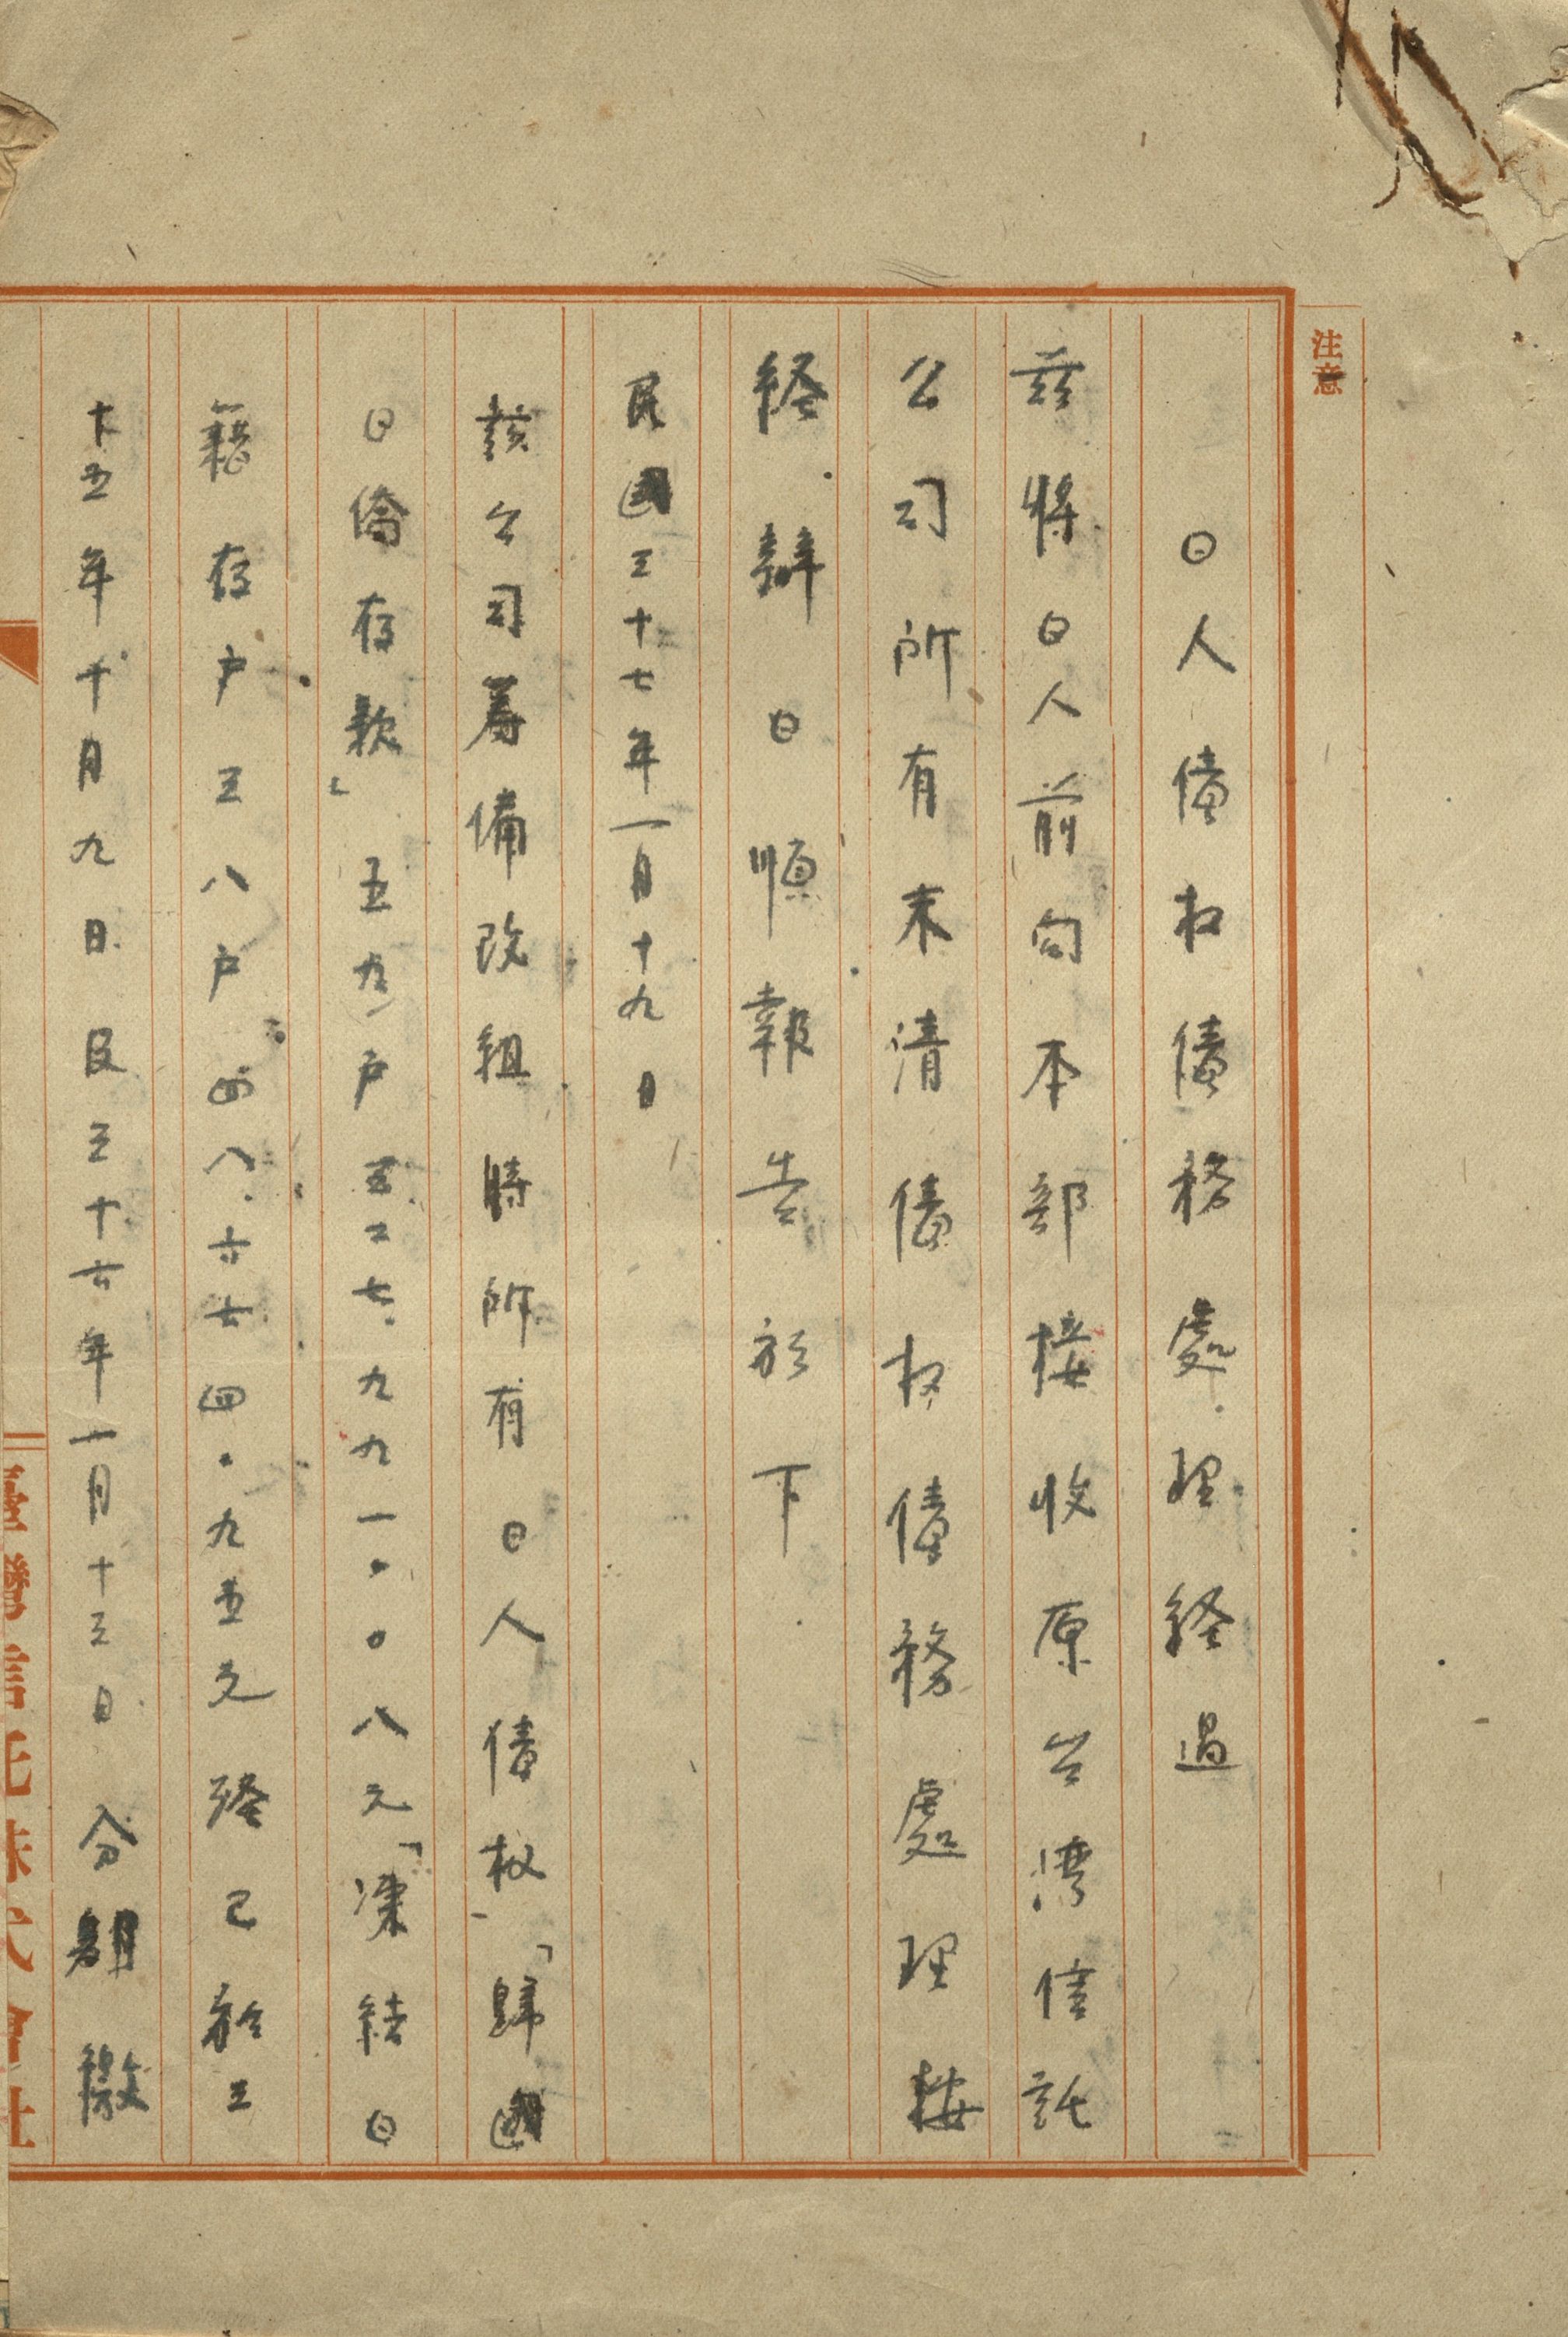 注意
日人債权債務處理経過
茲將日人前向本部接收原台湾信託
公司所有未清債权債務處理接
経辦日順報告於下
民國三十七年一月十九日
該公司籌備改組時所有日人債权「歸國
日僑存款」五九户五二七.九九一.〇八元「凍結日
籍存户三八户四八.六七四.九五元 経已於三
十五年十月九日及三十六年一月十三日分別繳
臺灣信託株式會社